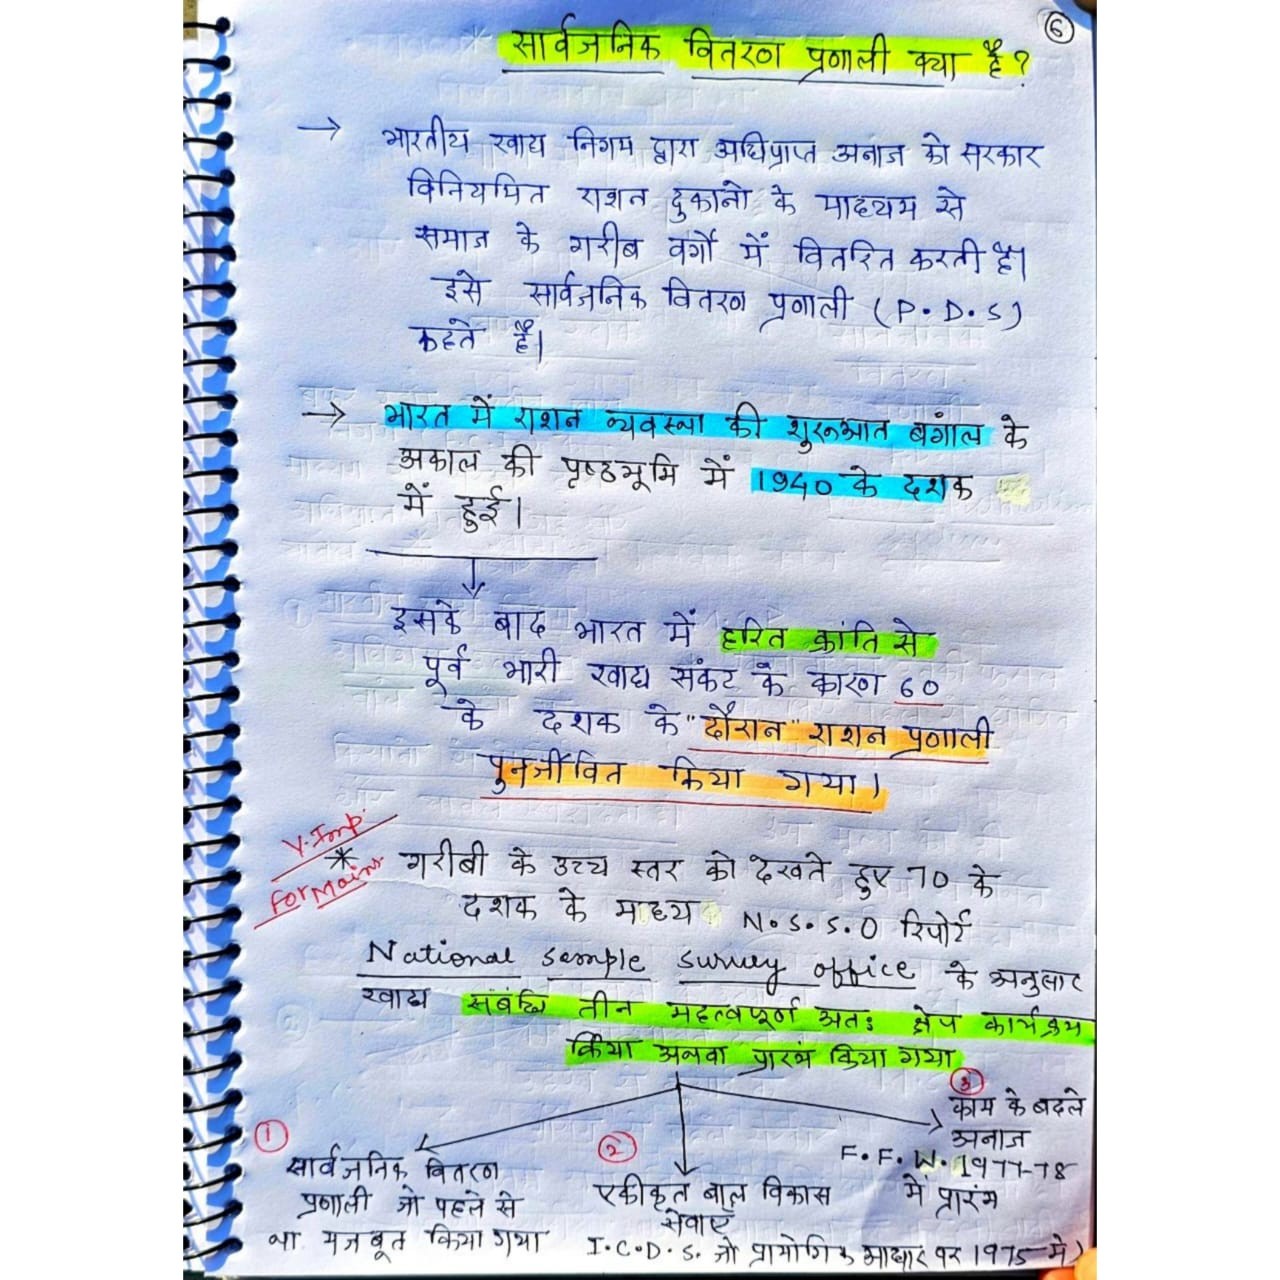 6
सार्वजनिक वितरण प्रणाली क्या है?
→ भारतीय खाद्य निगम द्वारा अधिप्राप्त अनाज को सरकार
विनियमित राशन दुकानो के माध्यम से
समाज के गरीब वर्गों में वितरित करती है।
इसे सार्वजनिक वितरण प्रणाली (P.D.S)
कहते हैं।
→ भारत में राशन व्यवस्था की शुरूआत बंगाल के
अकाल की पृष्ठभूमि में 1940 के दशक
में हुई।
इसके बाद भारत में हरित क्रांति से
पूर्व भारी खाद्य संकट के कारण 60
के दशक के "दौरान" राशन प्रणाली
पुनर्जीवित किया गया।
V.Imp.
For Mains
* गरीबी के उच्च स्तर को देखते हुए 70 के
दशक के माध्य N.S.S.O रिपोर्ट
National sample survey office के अनुसार
खाद्य संबंधि तीन महत्वपूर्ण अतः क्षेप कार्यक्रम
किया अथवा प्रारंभ किया गया
① सार्वजनिक वितरण
प्रणाली जो पहले से
था मजबूत किया गया
② एकीकृत बाल विकास
सेवाएं
I.C.D.S. जो प्रायोगिक आधार पर 1975 में)
③ काम के बदले
अनाज
F.F.W. 1977-78
में प्रारंभ